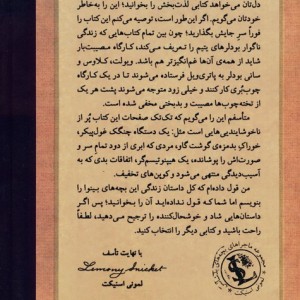 دل‌تان می‌خواهد کتابی لذت‌بخش را بخوانید؛ این را به‌خاطر
خودتان می‌گویم. اگر این‌طور است، توصیه می‌کنم این کتاب را
فوراً سر جایش بگذارید؛ چون بین تمام کتاب‌هایی که زندگی
ناگوار بودلرهای یتیم را تعریف می‌کند، کارگاه مصیبت‌بار
شاید از همه‌ی آن‌ها غم‌انگیزتر هم باشد. ویولت، کلاوس و
سانی بودلر به پالتری‌ویل فرستاده می‌شوند تا در یک کارگاه
چوب‌بُری کار کنند و خیلی زود متوجه می‌شوند پشت هر یک
از تخته‌چوب‌ها مصیبت و بدبختی مخفی شده است.
متأسفم این را می‌گویم که تک‌تک صفحات این کتاب پُر از
ناخوشایندی‌هایی است مثل: یک دستگاه چنگک غول‌پیکر،
خوراکِ بدمزه‌ی گوشت گاو، مردی که ابری از دود تمام سر و
صورت‌اش را پوشانده، یک هیپنوتیسم‌گر، اتفاقات بدی که به
آسیب‌دیدگی منتهی می‌شود و کوپن‌های تخفیف.
من قول داده‌ام که کل داستان زندگی این بچه‌های بینوا را
بنویسم اما شما که قول نداده‌اید آن را بخوانید؛ پس اگر
داستان‌هایی شاد و خوشحال‌کننده را ترجیح می‌دهید، لطفاً
راحت باشید و کتابی دیگر را انتخاب کنید.
با نهایت تأسف
Lemony Snicket
لمونی اسنیکت